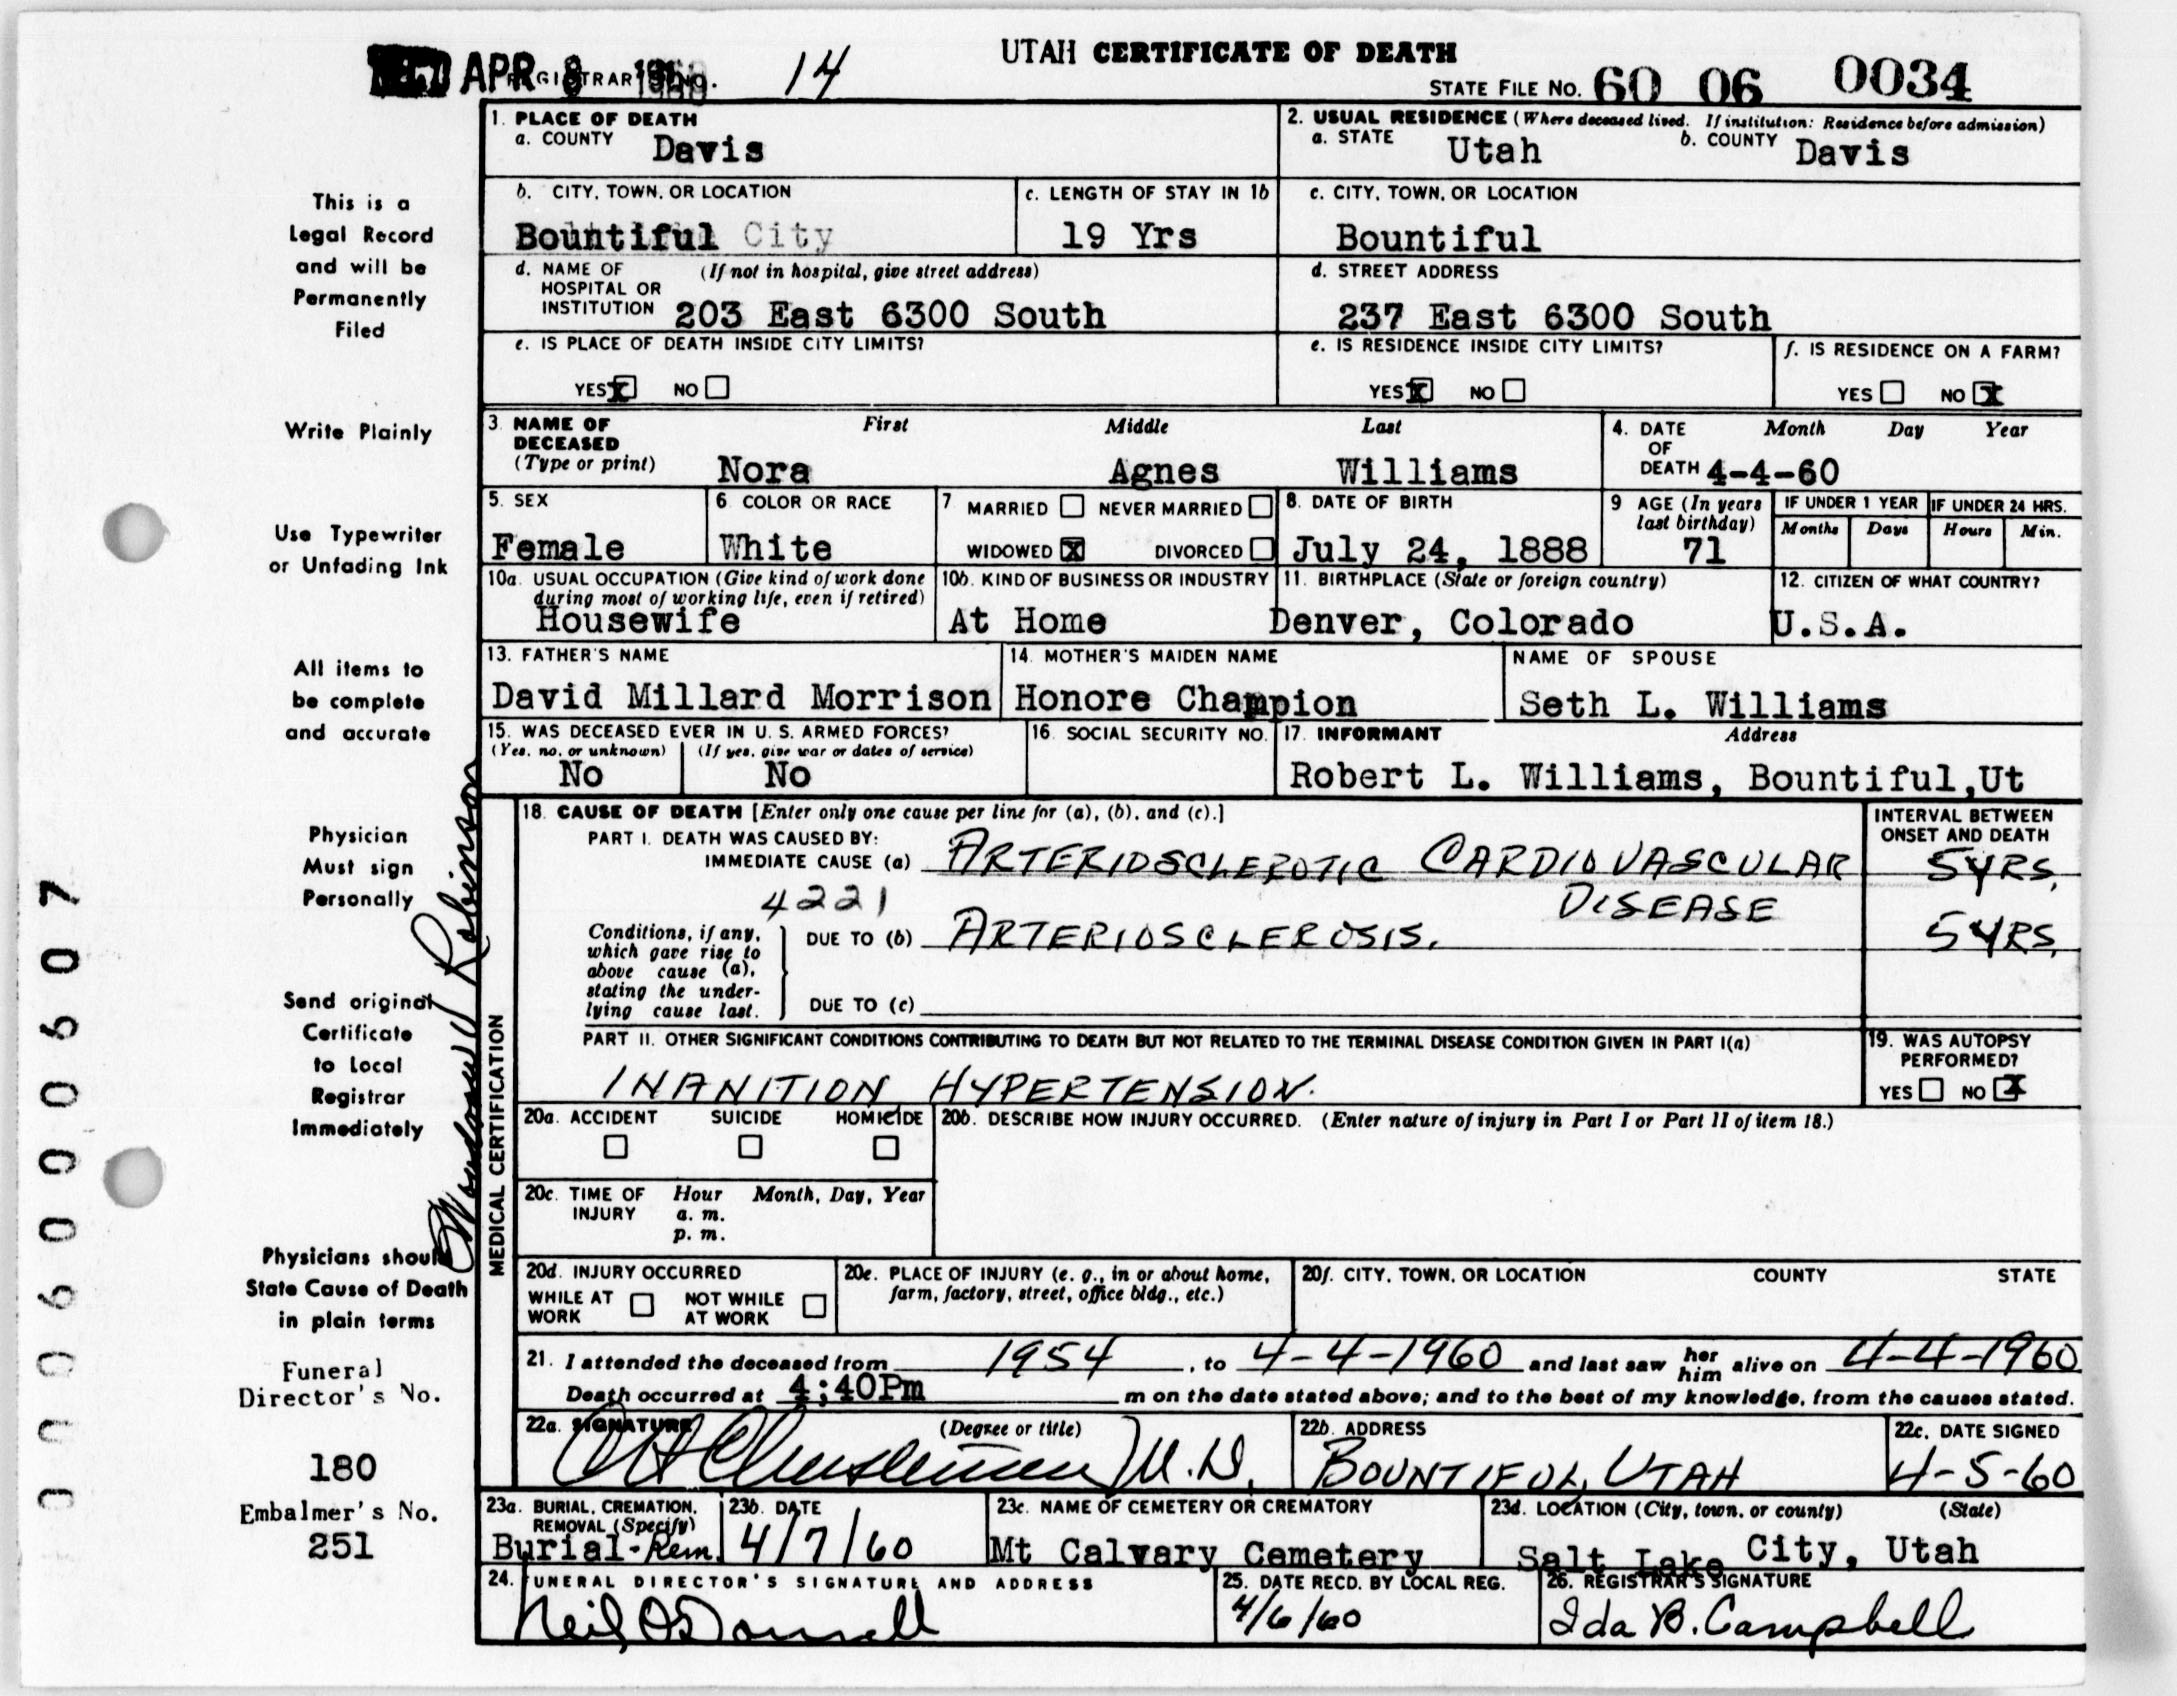 UTAH CERTIFICATE OF DEATH
APR 8 REGISTRAR'S NO. 14
STATE FILE NO. 60 06 0034
1. PLACE OF DEATH
a. COUNTY Davis
2. USUAL RESIDENCE (Where deceased lived. If institution: Residence before admission)
a. STATE Utah b. COUNTY Davis
b. CITY, TOWN, OR LOCATION
Bountiful City
c. LENGTH OF STAY IN 1b
19 Yrs
c. CITY, TOWN, OR LOCATION
Bountiful
d. NAME OF HOSPITAL OR INSTITUTION (If not in hospital, give street address)
203 East 6300 South
d. STREET ADDRESS
237 East 6300 South
e. IS PLACE OF DEATH INSIDE CITY LIMITS?
YES X NO
e. IS RESIDENCE INSIDE CITY LIMITS?
YES X NO
f. IS RESIDENCE ON A FARM?
YES NO X
3. NAME OF DECEASED (Type or print) First Middle Last
Nora Agnes Williams
4. DATE OF DEATH Month Day Year
4-4-60
5. SEX
Female
6. COLOR OR RACE
White
7 MARRIED NEVER MARRIED
WIDOWED X DIVORCED
8. DATE OF BIRTH
July 24, 1888
9 AGE (In years last birthday)
71
IF UNDER 1 YEAR
Months Days
IF UNDER 24 HRS.
Hours Min.
10a. USUAL OCCUPATION (Give kind of work done during most of working life, even if retired)
Housewife
10b. KIND OF BUSINESS OR INDUSTRY
At Home
11. BIRTHPLACE (State or foreign country)
Denver, Colorado
12. CITIZEN OF WHAT COUNTRY?
U.S.A.
13. FATHER'S NAME
David Millard Morrison
14. MOTHER'S MAIDEN NAME
Honore Champion
NAME OF SPOUSE
Seth L. Williams
15. WAS DECEASED EVER IN U. S. ARMED FORCES?
(Yes, no, or unknown) (If yes, give war or dates of service)
No No
16. SOCIAL SECURITY NO.
17. INFORMANT Address
Robert L. Williams, Bountiful,Ut
MEDICAL CERTIFICATION
18. CAUSE OF DEATH [Enter only one cause per line for (a), (b), and (c).]
INTERVAL BETWEEN ONSET AND DEATH
PART I. DEATH WAS CAUSED BY:
IMMEDIATE CAUSE (a) ARTERIOSCLEROTIC CARDIOVASCULAR DISEASE 5 YRS.
4221
Conditions, if any, which gave rise to above cause (a), stating the underlying cause last.
DUE TO (b) ARTERIOSCLEROSIS. 5 YRS.
DUE TO (c)
PART II. OTHER SIGNIFICANT CONDITIONS CONTRIBUTING TO DEATH BUT NOT RELATED TO THE TERMINAL DISEASE CONDITION GIVEN IN PART I(a)
INANITION HYPERTENSION.
19. WAS AUTOPSY PERFORMED?
YES NO X
20a. ACCIDENT SUICIDE HOMICIDE
20b. DESCRIBE HOW INJURY OCCURRED. (Enter nature of injury in Part I or Part II of item 18.)
20c. TIME OF INJURY Hour Month, Day, Year
a. m.
p. m.
20d. INJURY OCCURRED
WHILE AT WORK NOT WHILE AT WORK
20e. PLACE OF INJURY (e. g., in or about home, farm, factory, street, office bldg., etc.)
20f. CITY, TOWN, OR LOCATION COUNTY STATE
21. I attended the deceased from 1954, to 4-4-1960 and last saw her him alive on 4-4-1960
Death occurred at 4;40Pm m on the date stated above; and to the best of my knowledge, from the causes stated.
22a. SIGNATURE (Degree or title)
M.D.
22b. ADDRESS
BOUNTIFUL, UTAH
22c. DATE SIGNED
4-5-60
23a. BURIAL, CREMATION, REMOVAL (Specify)
Burial-Rem.
23b. DATE
4/7/60
23c. NAME OF CEMETERY OR CREMATORY
Mt Calvary Cemetery
23d. LOCATION (City, town, or county) (State)
Salt Lake City, Utah
24. FUNERAL DIRECTOR'S SIGNATURE AND ADDRESS
Neil O'Donnell
25. DATE RECD. BY LOCAL REG.
4/6/60
26. REGISTRAR'S SIGNATURE
Ida B. Campbell
This is a
Legal Record
and will be
Permanently
Filed
Write Plainly
Use Typewriter
or Unfading Ink
All items to
be complete
and accurate
Physician
Must sign
Personally
Send original
Certificate
to Local
Registrar
Immediately
Physicians should
State Cause of Death
in plain terms
Funeral
Director's No.
180
Embalmer's No.
251
Robinson